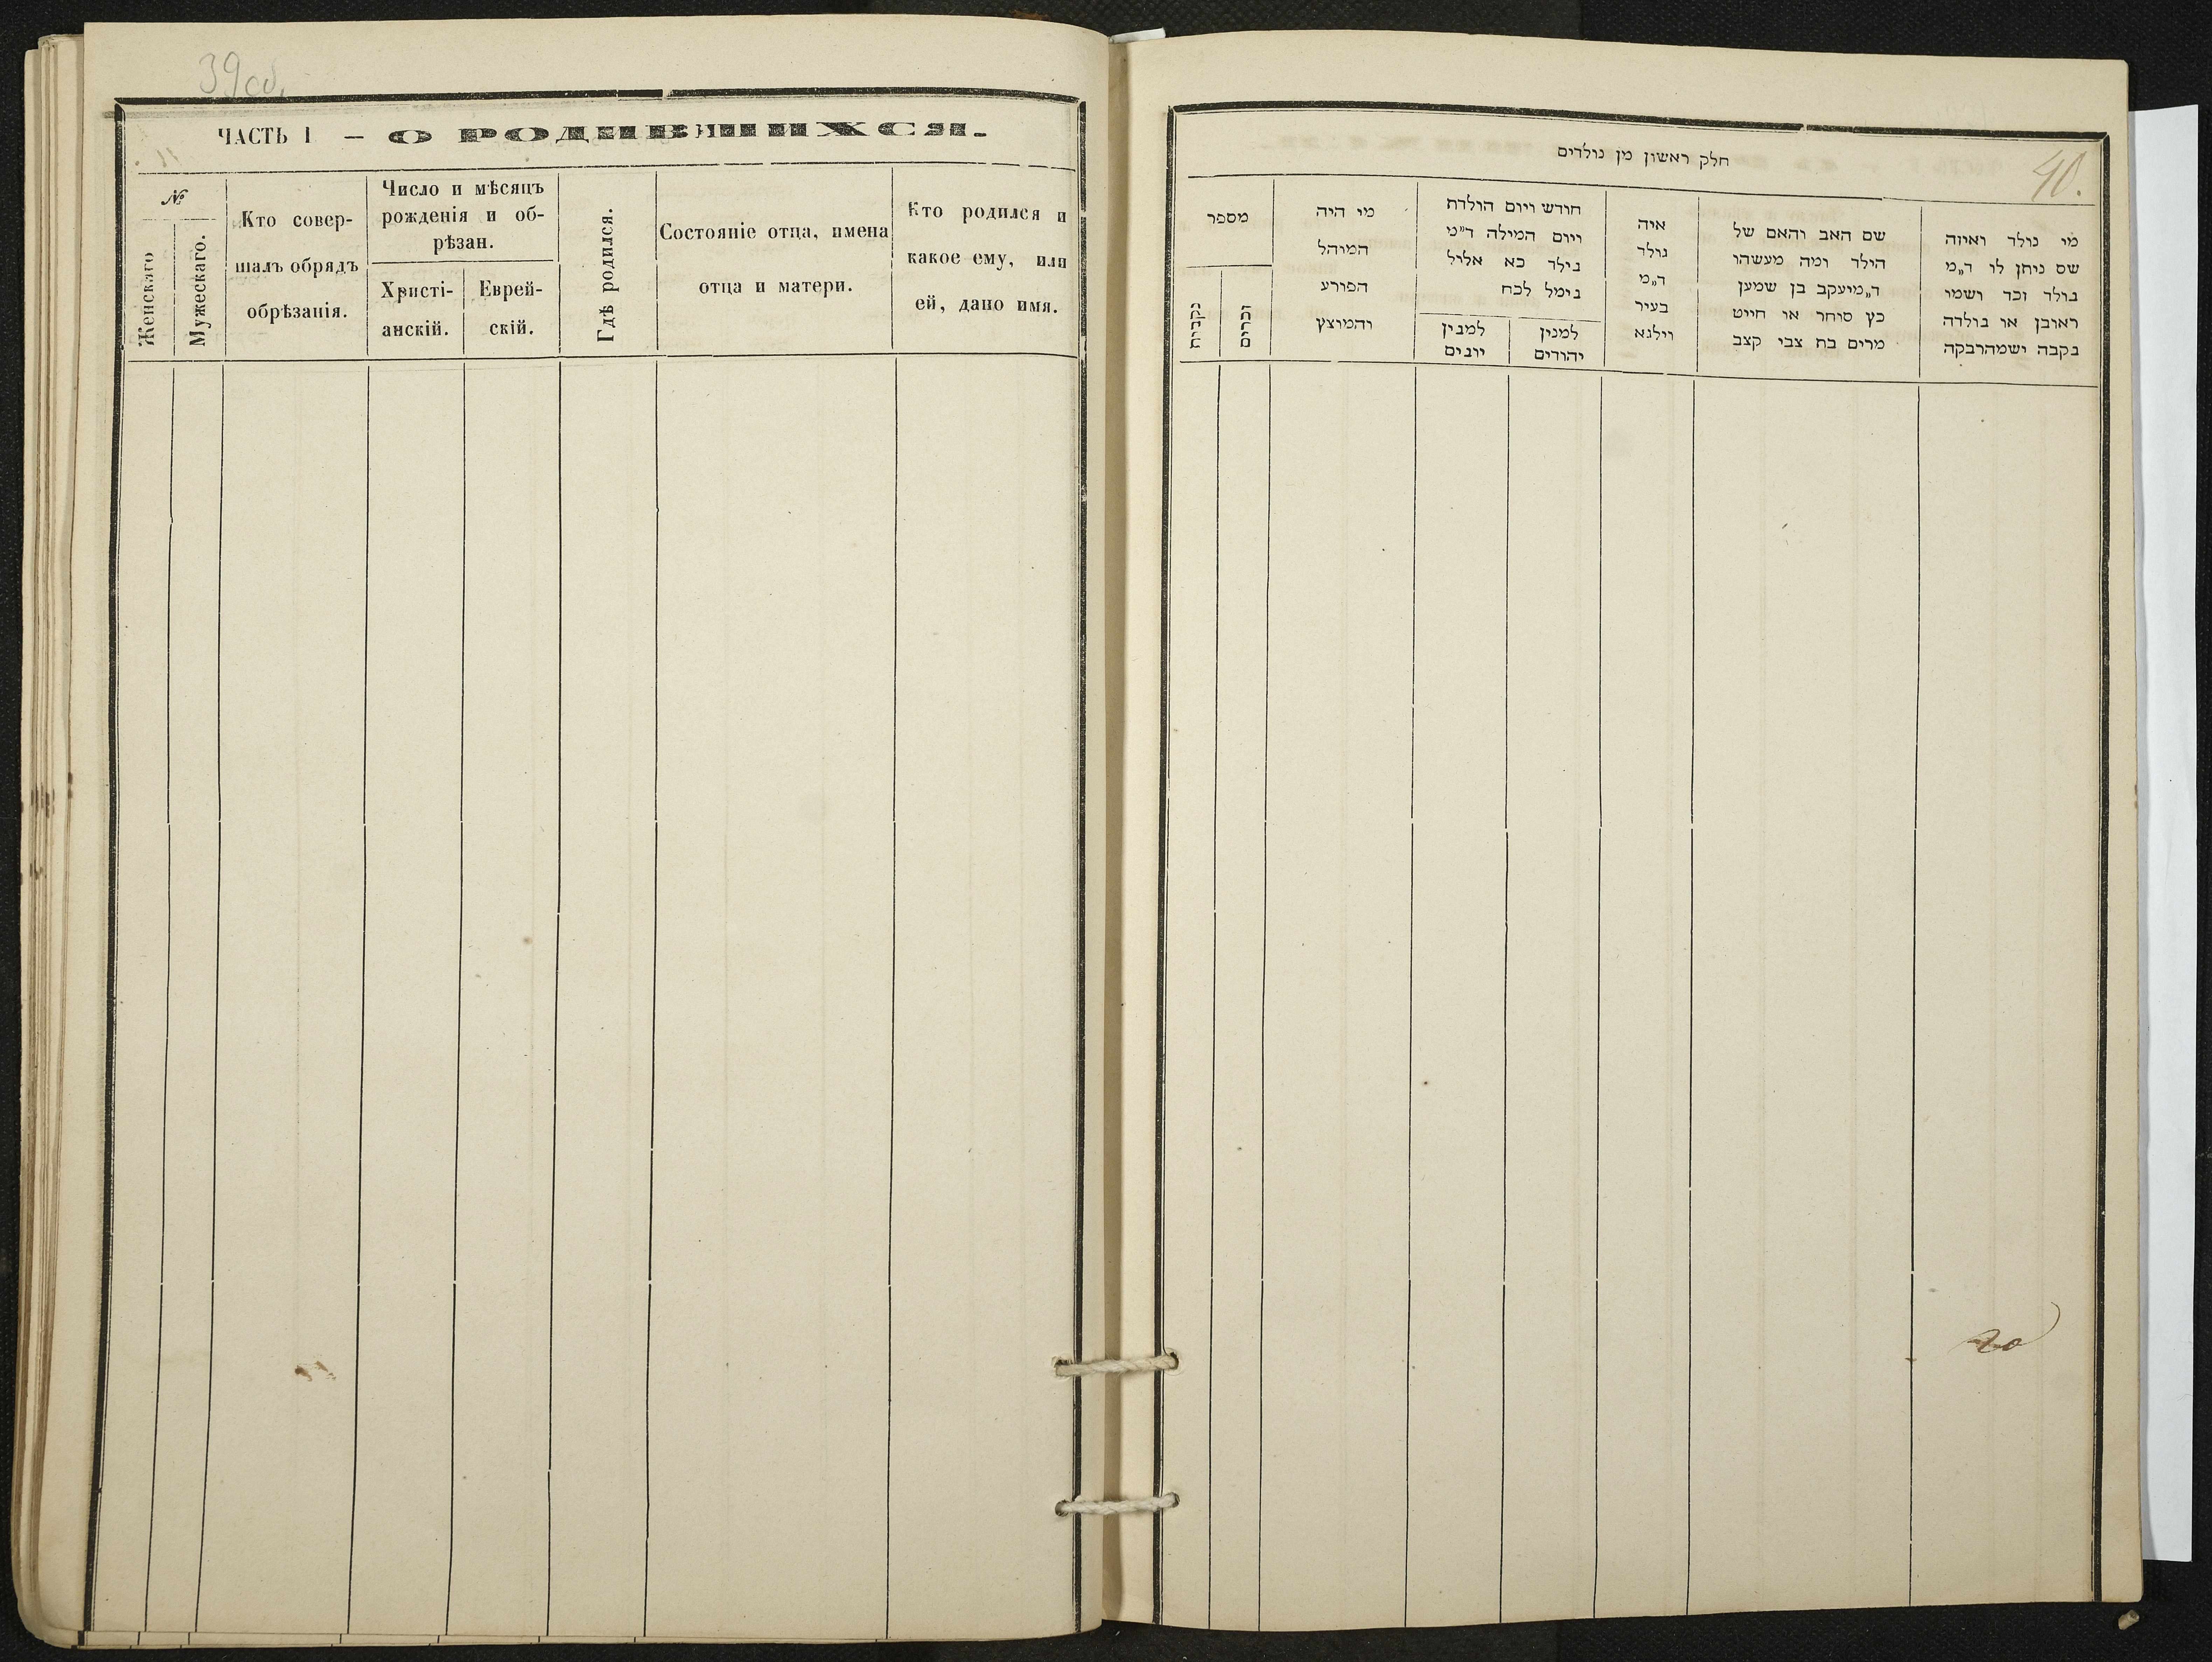 39об.
ЧАСТЬ I — О РОДИВШИХСЯ.
№
Женскаго
Мужескаго.
Кто совер-
шалъ обрядъ
обрѣзанія.
Число и мѣсяцъ
рожденія и об-
рѣзан.
Христі-
анскій.
Еврей-
скій.
Гдѣ родился.
Состояніе отца, имена
отца и матери.
Кто родился и
какое ему, или
ей, дано имя.
40.
חלק ראשון מן נולדים
מספר
נקבות
זכרים
מי היה
המוהל
הפורע
והמוצץ
חודש ויום הולדת
ויום המילה ד״מ
נילד כא אליל
נימל לכח
למנין
יונים
למנין
יהודים
איה
נולד
ד״מ
בעיר
וילנא
שם האב והאם של
הילד ומה מעשהו
ד„מ יעקב בן שמען
כץ סוחר או חייט
מרים בח צבי קצב
מי נולד ואיזה
שם ניתן לו ד„מ
נולד זכר ושמו
ראובן או נולדה
נקבה ישמהרבקה